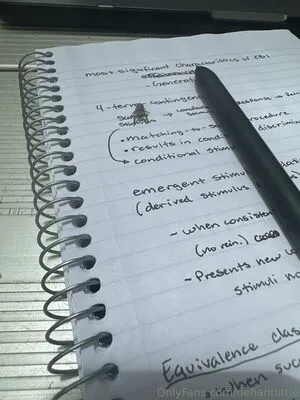 most significant characteristics of EBI
- Generati
4-term contingen
→ response →
• matching-to-s procedure
• results in cond discrimin
conditional stim
emergent stimu
(derived stimulus
- when consisten
(no rein.)
- Presents new
stimuli no
Equivalence clas
- when suc
OnlyFans.com/defiantlittle